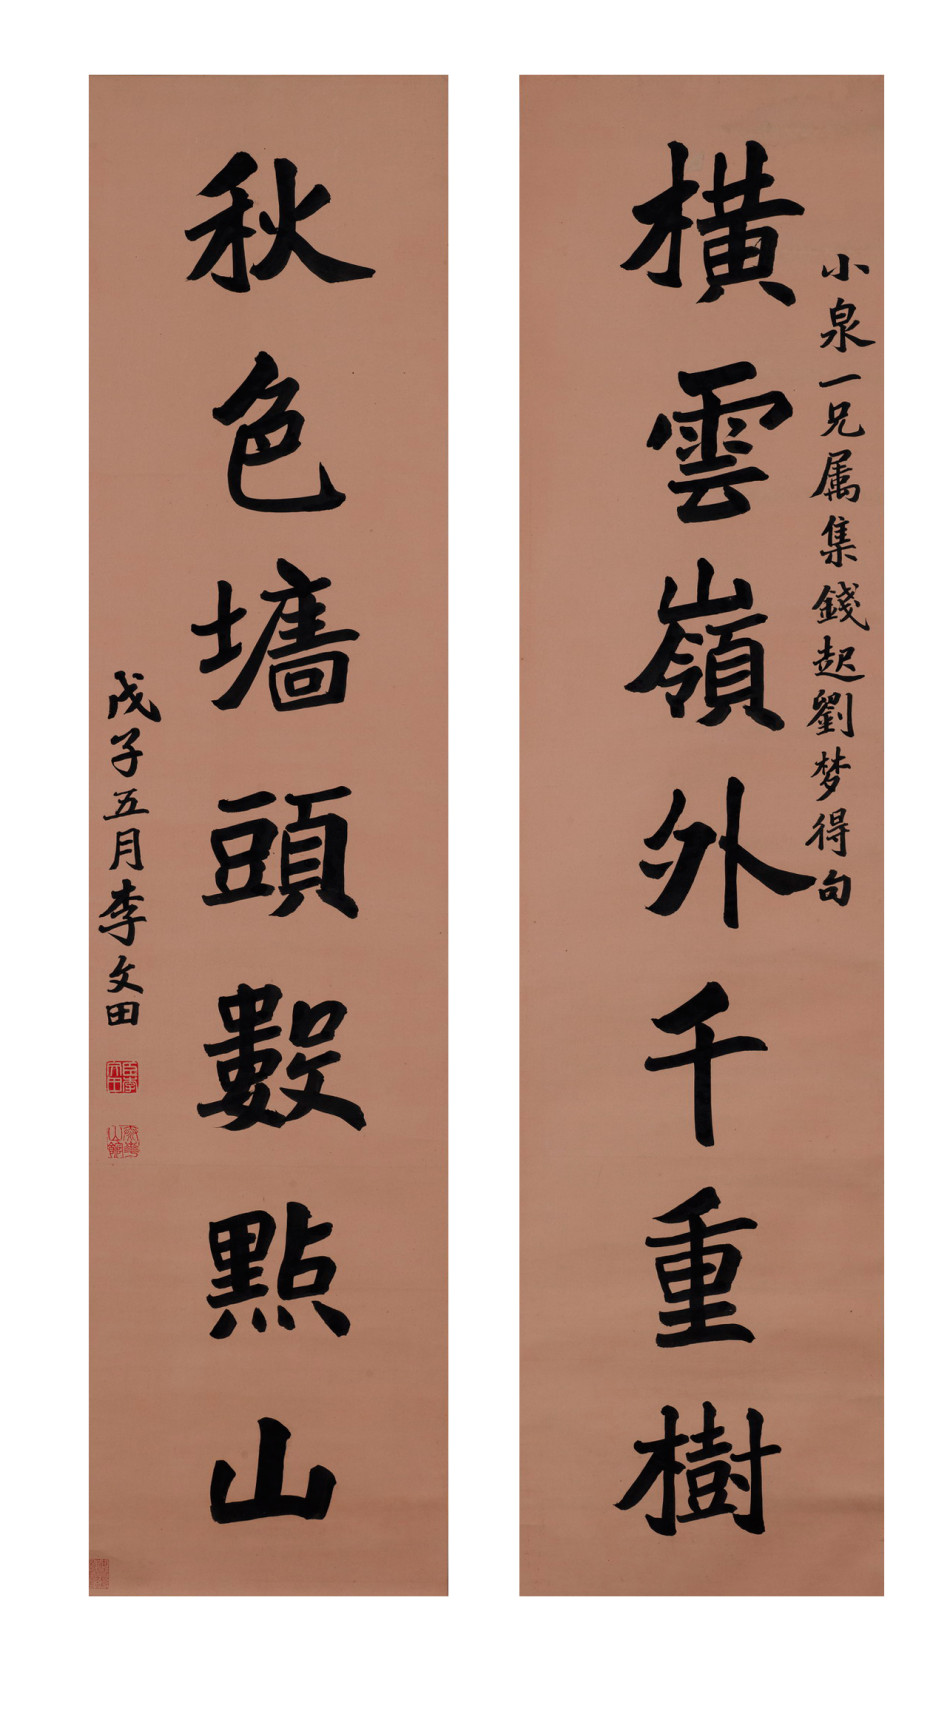 小泉一兄属集錢起劉梦得句
橫雲嶺外千重樹
秋色墻頭數點山
戊子五月李文田
臣李文田